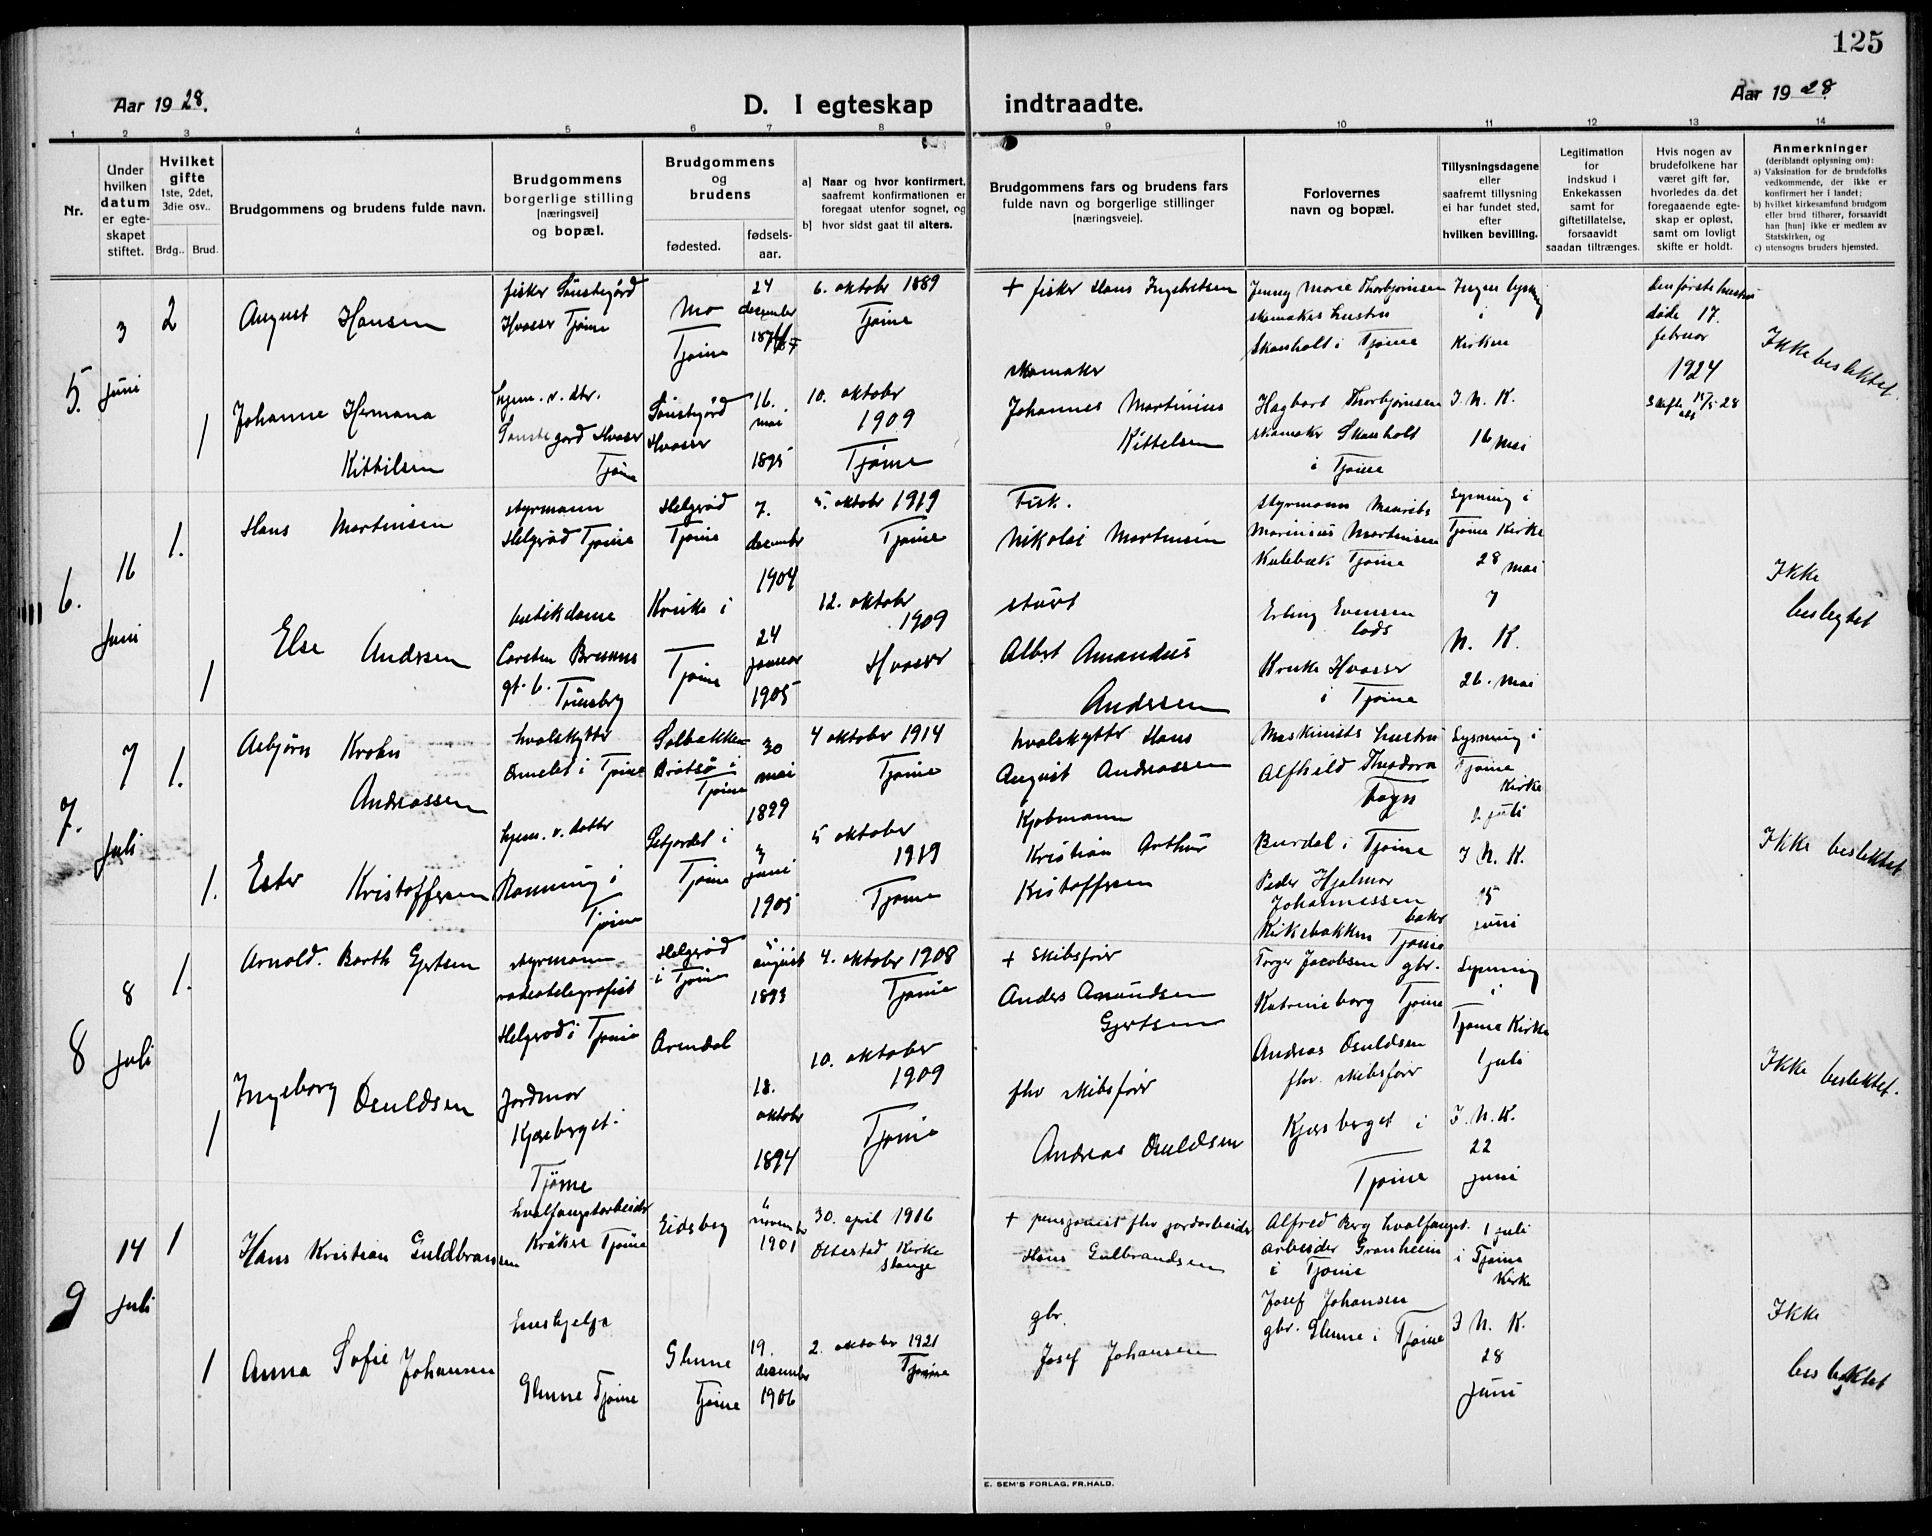 125
Aar 1928.
D. I egteskap indtraadte.
Aar 1928
1 2 3 4 5 6 7 8 9 10 11 12 13 14
Nr.
Under hvilken datum er egteskapet stiftet.
Hvilket gifte
1ste, 2det, 3die osv..
Brdg.. Brud.
Brudgommens og brudens fulde navn.
Brudgommens borgerlige stilling [næringsvei] og bopæl.
Brudgommens og brudens
fødested.
fødsels-aar.
a] Naar og hvor konfirmert, saafremt konfirmationen er foregaat utenfor sognet, og
b] hvor sidst gaat til alters.
Brudgommens fars og brudens fars fulde navn og borgerlige stillinger [næringsveie].
Forlovernes navn og bopæl.
Tillysningsdagene eller saafremt tillysning ei har fundet sted, efter hvilken bevilling.
Legitimation for indskud i Enkekassen samt for giftetillatelse, forsaavidt saadan tiltrænges.
Hvis nogen av brudefolkene har været gift før, hvorledes da det foregaaende egteskap er opløst, samt om lovligt skifte er holdt.
Anmerkninger
(deriblandt oplysning om):
a) Vaksination for de brudefolks vedkommende, der ikke er konfirmert her i landet;
b) hvilket kirkesamfund brudgom eller brud tilhører, forsaavidt han [hun] ikke er medlem av Statskirken, og
c) utensogns bruders hjemsted.
5.
3
Juni
2
August Hansen
fisker Sønstegård
Hvasser Tjøme
Mo
Tjøme
24
desember
6. oktober 1889
Tjøme
+ fisker Hans Ingebretsen
Jenny Marie Thorbjørnsen
skomakers hustru
Skarsholt i Tjøme
Ingen lysning
i
Kirken
Den første hustru
døde 17.
februar
1924
Skifte
Ikke beslektet.
1
Johanne Hermana
Kittilsen
hjem. v. dtr.
Sønstegård Hvasser
Tjøme
Sønstegård
Hvasser
16.
mai
1895
10. oktober
1909
Tjøme
skomaker
Johannes Martinius
Kittelsen
Hagbart Thorbjørnsen
skomaker Skarsholt
i Tjøme
I. N. K.
16 mai
6.
16
Juni
1.
Hans Martinsen
styrmann
Helgerød Tjøme
Helgerød
Tjøme
7.
desember
1904
5. oktober 1919
Tjøme
Nikolai Martinsen
styrmann Mauritz
Marinius Martinsen
Kulebæk Tjøme
Lysning i
Tjøme Kirke
28 mai
Ikke
beslegtet
1
Else Andersen
butikdame
Carsten Bruuns
gt. 6. Tønsberg
Kruke i
Tjøme
24
januar
1905
12. oktober
1909
Hvasser
stuert
Albert Amandus
Andersen
Erling Evensen
lods
Kruke Hvasser
i Tjøme
N. K.
26. mai
7.
7
Juli
1.
Asbjørn Krohn
Andreassen
hvalskytter
Ormelet i Tjøme
Solbakken
Brøtsø i
Tjøme
30
mai
1899
4 oktober 1914
Tjøme
hvalskytter Hans
August Andreassen
Maskinists hustru
Alfhild Theodora
Lysning i
Tjøme
Kirke
Juli
Ikke beslektet
1.
Ester Kristoffersen
hjem. v. datter
Rønning i
Tjøme
i
Tjøme
3
juni
1905
5 oktober
1919
Tjøme
Kjøbmann
Kristian Arthur
Kistoffersen
Burdal i Tjøme
Peder Hjalmar
Johannessen
baker
Kirkebakken Tjøme
I N. K.
15
juni
8
8
juli
1.
Arnold. Barth Gjertsen
styrmann
radiotelegrafist
Helgerød i Tjøme
Helgerød
i Tjøme
5
august
1893
4. oktober 1908
Tjøme
+ Skibsfører
Anders Amundsen
Gjertsen
Torger Jacobsen gbr.
Katrineborg Tjøme
Lysning
i
Tjøme Kirke
1 juli
Ikke beslektet.
1
Ingeborg Osuldsen
Jordmor
Kjærsberget.
Tjøme
Arendal
18.
oktober
1894
10. oktober
1909
Tjøme
fhv skibsfører
Andreas Osuldsen
Andreas Osuldsen
fhv. skibsfører
Kjærsberget i
Tjøme
I. N. K.
22
juni
9
14
juli
1
Hans Kristian Guldbransen
hvalfangstarbeider
Kråkere Tjøme
Eidsberg
6
november
1901
30. april 1916
Ottestad Kirke
Stange
+ pensjonist fhv jordarbeider
Hans Gulbrandsen
Alfred Berg hvalfangst.
arbeider Granheim
i Tjøme
1 juli
i Tjøme
Kirke
Ikke
beslektet
1
Anna Sofie Johansen
Hushjelp
Glenne Tjøme
Glenne
Tjøme
19.
desember
1906
2. oktober 1921
Tjøme
gbr.
Josef Johansen
Josef Johansen
gbr. Glenne i Tjøme
I N. K.
28
Juni
E. SEM'S FORLAG, FR.HALD.